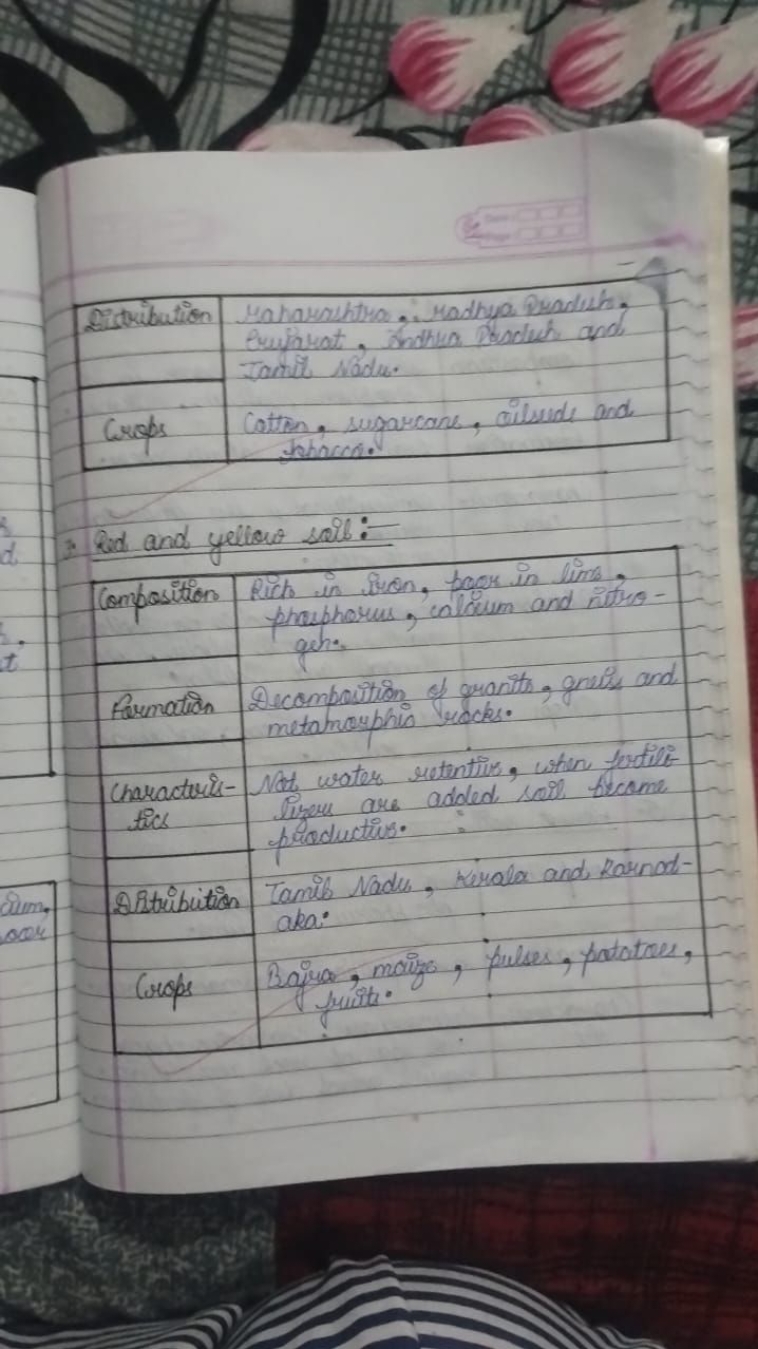 Distribution Maharashtra, Madhya Pradesh,
Gujarat, Andhra Pradesh and
Tamil Nadu.
Crops Cotton, sugarcane, oilseeds and
tobacco.
Red and yellow soil:-
Composition Rich in Iron, poor in lime,
phosphorus, calcium and nitro-
gen.
Formation Decomposition of granite, gneiss and
metamorphic rocks.
Characteris- Not water retentive, when fertili-
tics lizers are added soil become
productive.
Distribution Tamil Nadu, Kerala and Karnad-
aka.
Crops Bajra, maize, pulses, patatoes,
fruits.